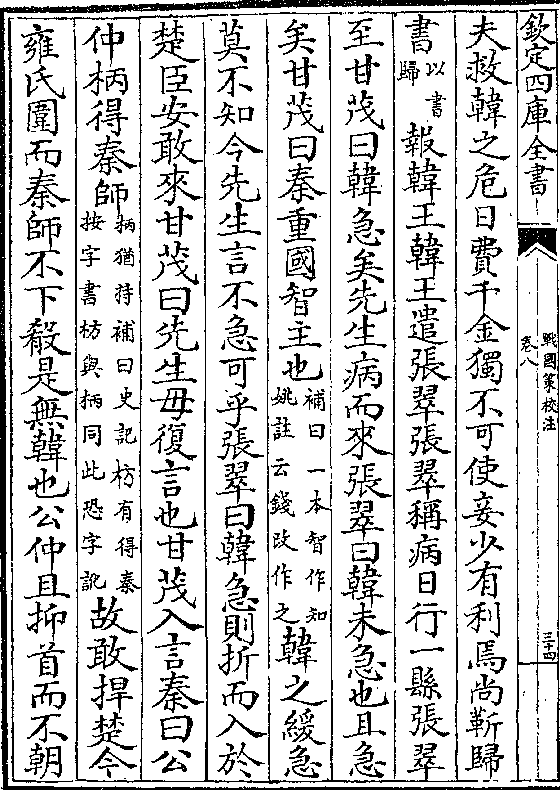 欽定四庫全書
戰國策校注
卷八
三十四
夫救韓之危日費千金獨不可使妾少有利焉尚靳歸
書以書歸報韓王韓王遣張翠張翠稱病日行一縣張翠
至甘茂曰韓急矣先生病而來張翠曰韓未急也且急
矣甘茂曰秦重國智主也補曰一本智作知姚註云錢改作之韓之緩急
莫不知今先生言不急可乎張翠曰韓急則折而入於
楚臣安敢來甘茂曰先生毋復言也甘茂入言秦曰公
仲柄得秦師柄猶持補曰史記枋有得秦按字書枋與柄同此恐字訛故敢捍楚今
雍氏圍而秦師不下殽是無韓也公仲且抑首而不朝